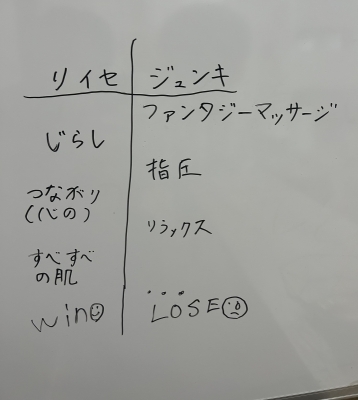 リイセ ジュンキ
ファンタジーマッサージ
じらし
指圧
つながり
(心の)
リラックス
すべすべ
の肌
win
...
LOSE